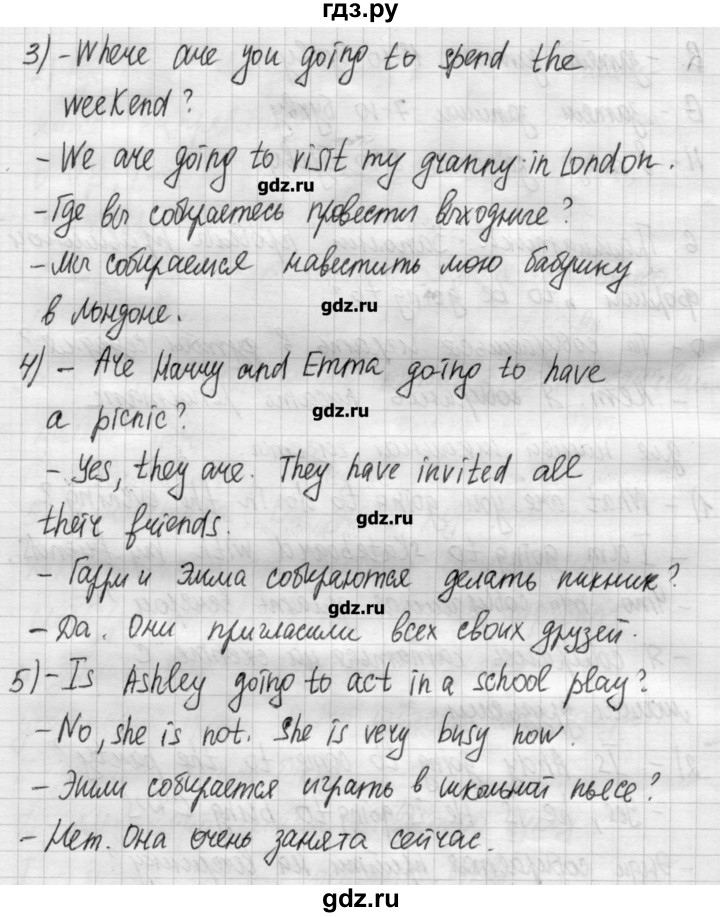 гдз.ру
3) - Where are you going to spend the
weekend?
- We are going to visit my granny in London.
gdz.ru
- Где вы собираетесь провести выходные?
- Мы собираемся навестить мою бабушку
gdz.ru
в Лондоне.
4) - Are Harry and Emma going to have
gdz.ru
a picnic?
- Yes, they are. They have invited all
their friends.
gdz.ru
- Гарри и Эмма собираются делать пикник?
gdz.ru
- Да. Они пригласили всех своих друзей.
5) - Is Ashley going to act in a school play?
gdz.ru
- No, she is not. She is very busy now.
- Эшли собирается играть в школьной пьесе?
- Нет. Она очень занята сейчас.
gdz.ru